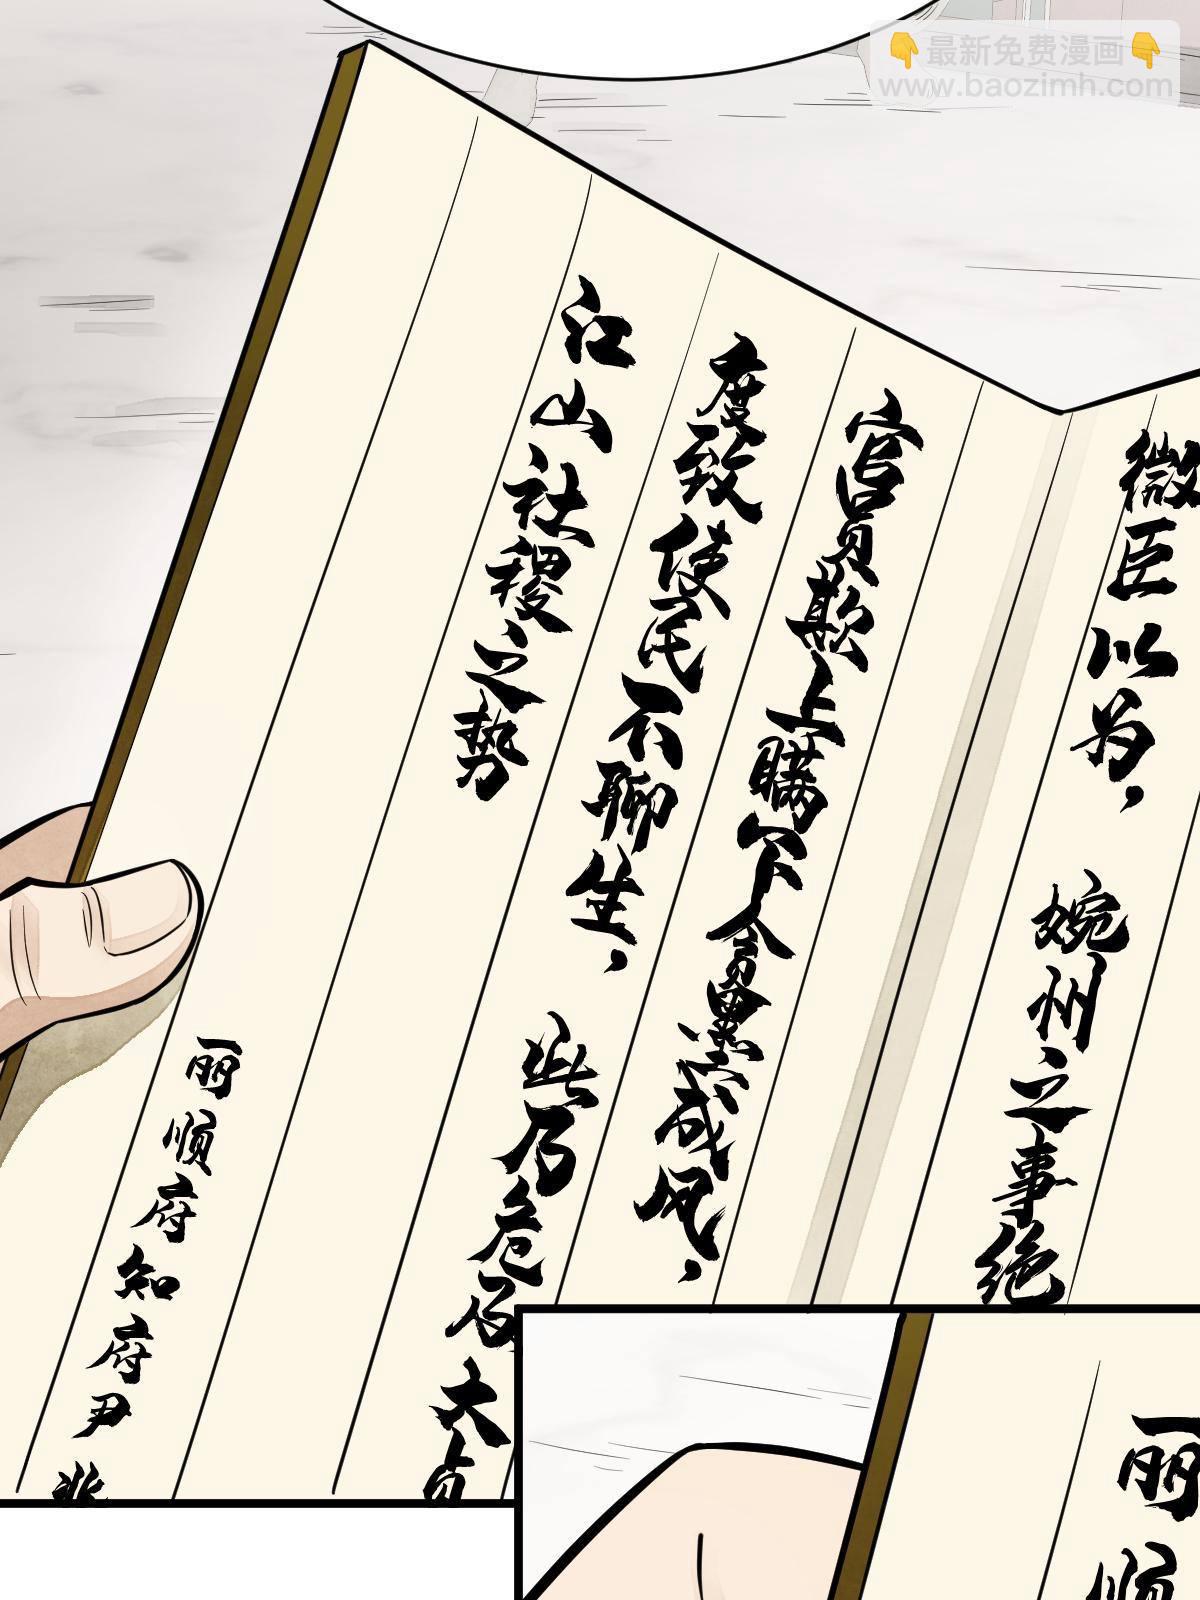 最新免费漫画
www.baozimh.com
微臣以为，婉州之事绝
官员欺上瞒下贪墨成风，
度致使民不聊生，此乃危及大贞
江山社稷之势
丽顺府知府尹兆
丽顺